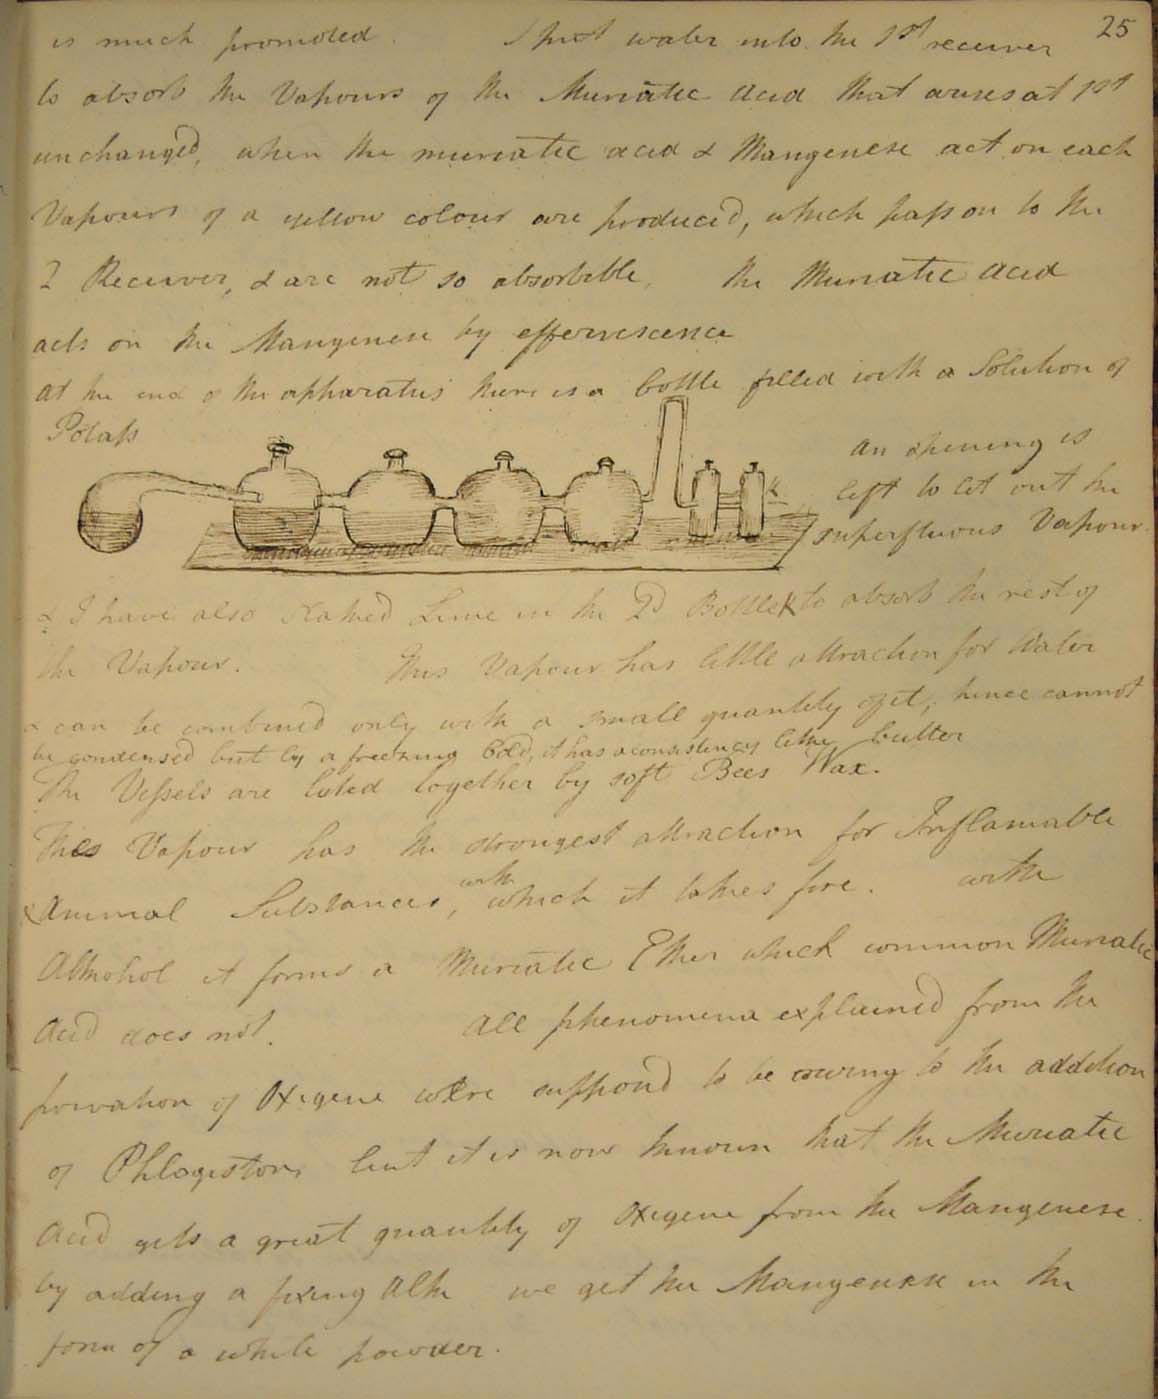 25
is much promoted. I put water into the 1st receiver
to absorb the Vapours of the Muriatic Acid that arises at 1st
unchanged, when the muriatic acid & Mangenese act on each
Vapours of a yellow colour are produced, which pass on to the
2 Receiver, & are not so absorbible. the Muriatic Acid
acts on the Mangenese by effervescence
at the end of the apparatus there is a bottle filled with a Solution of
Potass
an opening is
left to let out the
superfluous Vapour.
& I have also slaked Lime in the 2d Bottle to absorb the rest of
the Vapour. This Vapour has little attraction for Water
& can be combined only with a small quantity of it, hence cannot
be condensed but by a freezing Cold, it has a consistency like butter
The Vessels are luted together by soft Bees Wax.
This Vapour has the strongest attraction for Inflamable
& Animal Substances, with which it takes fire. with
Alkohol it forms a Muriatic Ether which common Muriatic
Acid does not. All phenomena explained from the
privation of Oxigene were suppond to be owing to the addition
of Phlogiston, but it is now known that the Muriatic
Acid gets a great quantity of Oxigene from the Mangenese.
by adding a fixing Alk we get the Mangenese in the
form of a white powder.